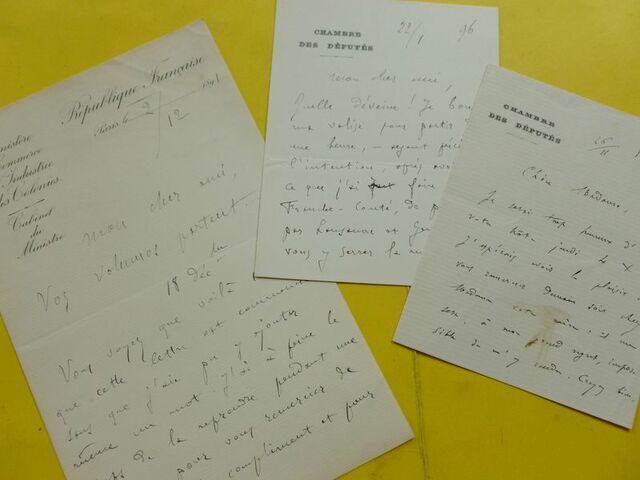 République Française
Paris le 2/12 189
Ministère
du Commerce
de l'Industrie
et des Colonies.
Cabinet
du
Ministre
Mon cher ami,
Vos volumes partent.
18 Déc
Vous voyez que voilà
que cette lettre est commencée
sans que j'aie pu y ajouter
même un mot j'ai à faire le
de la reprendre pendant une
pour vous remercier de
compliment et pour
CHAMBRE
DES DÉPUTÉS
22/1 96
Mon cher ami,
Quelle déveine ! Je
ma valise pour partir
une heure, – ayant
l'intention, après
ce que j'ai faire
Franche-Comté, de
par Lausanne et
vous y serrer la
CHAMBRE
DES DÉPUTÉS
25/11
Chère Madame,
Je serai trop heureux d'
votre hôte jeudi 4 X
j'espérais avoir le plaisir
vous remercier demain soir chez
Madame
à mon grand regret, impos
sible de m'y rendre. Croyez bien